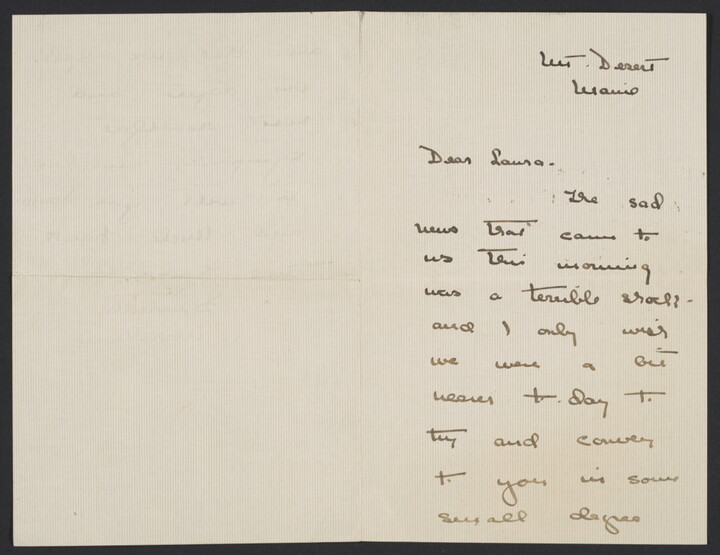 Mt. Desert
Maine
Dear Laura-
The sad
news that came to
us this morning
was a terrible shock-
and I only wish
we were a bit
nearer to-day to
try and convey
to you in some
small degree